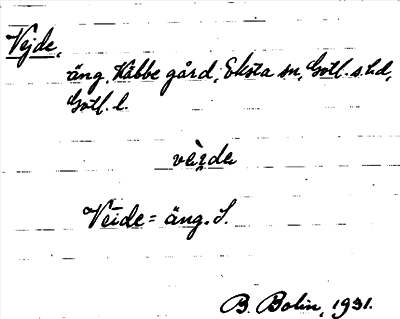 Vejde,
äng, Häbbe gård, Eksta sn, Gotl. s. hd,
Gotl. l.
Veide = äng. S.
B. Bolin, 1931.